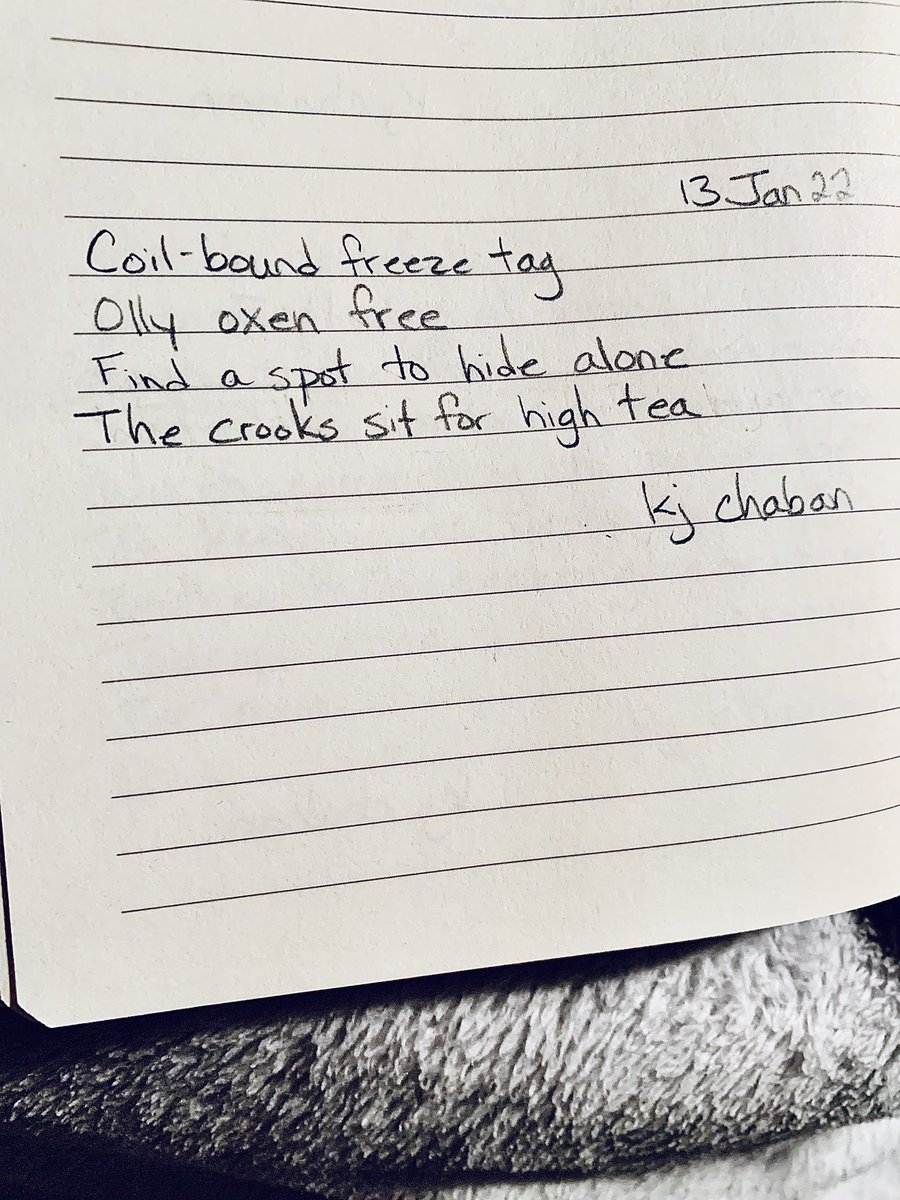 13 Jan 22
Coil-bound freeze tag
Olly oxen free
Find a spot to hide alone
The crooks sit for high tea
kj chaban